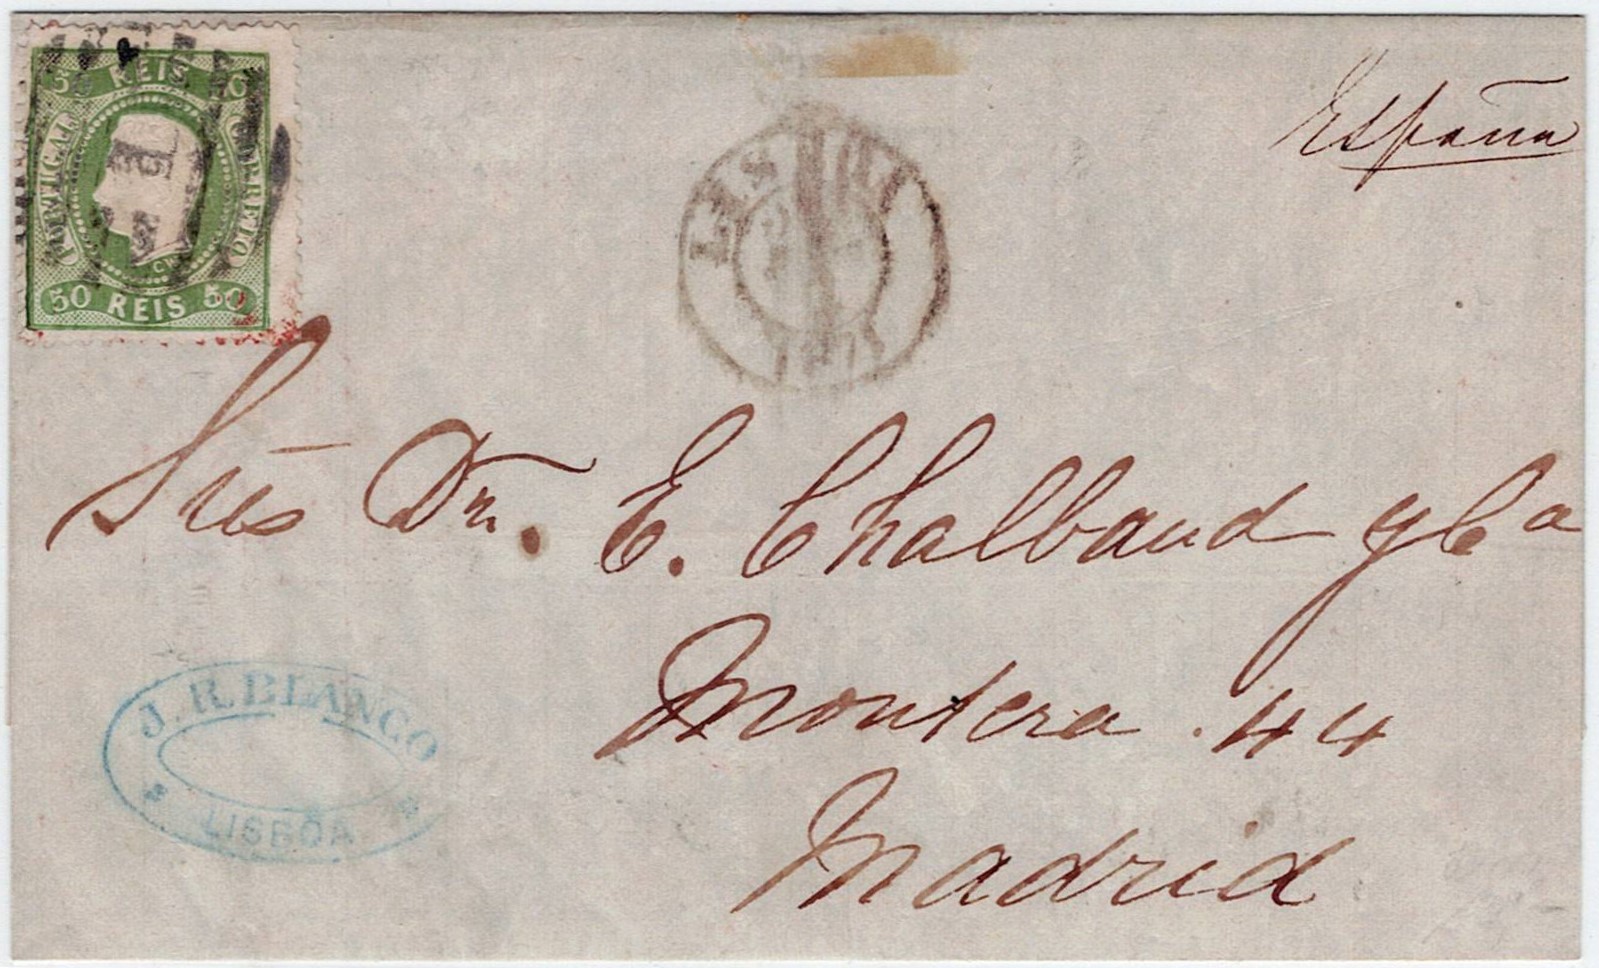 50 REIS 50
PORTUGAL
CORREIO
50 REIS 50
1
España
LISBOA
1871
Sres Dn. E. Chalbaud y Ca
Montera . 44
Madrid
J. R. BLANCO
LISBOA